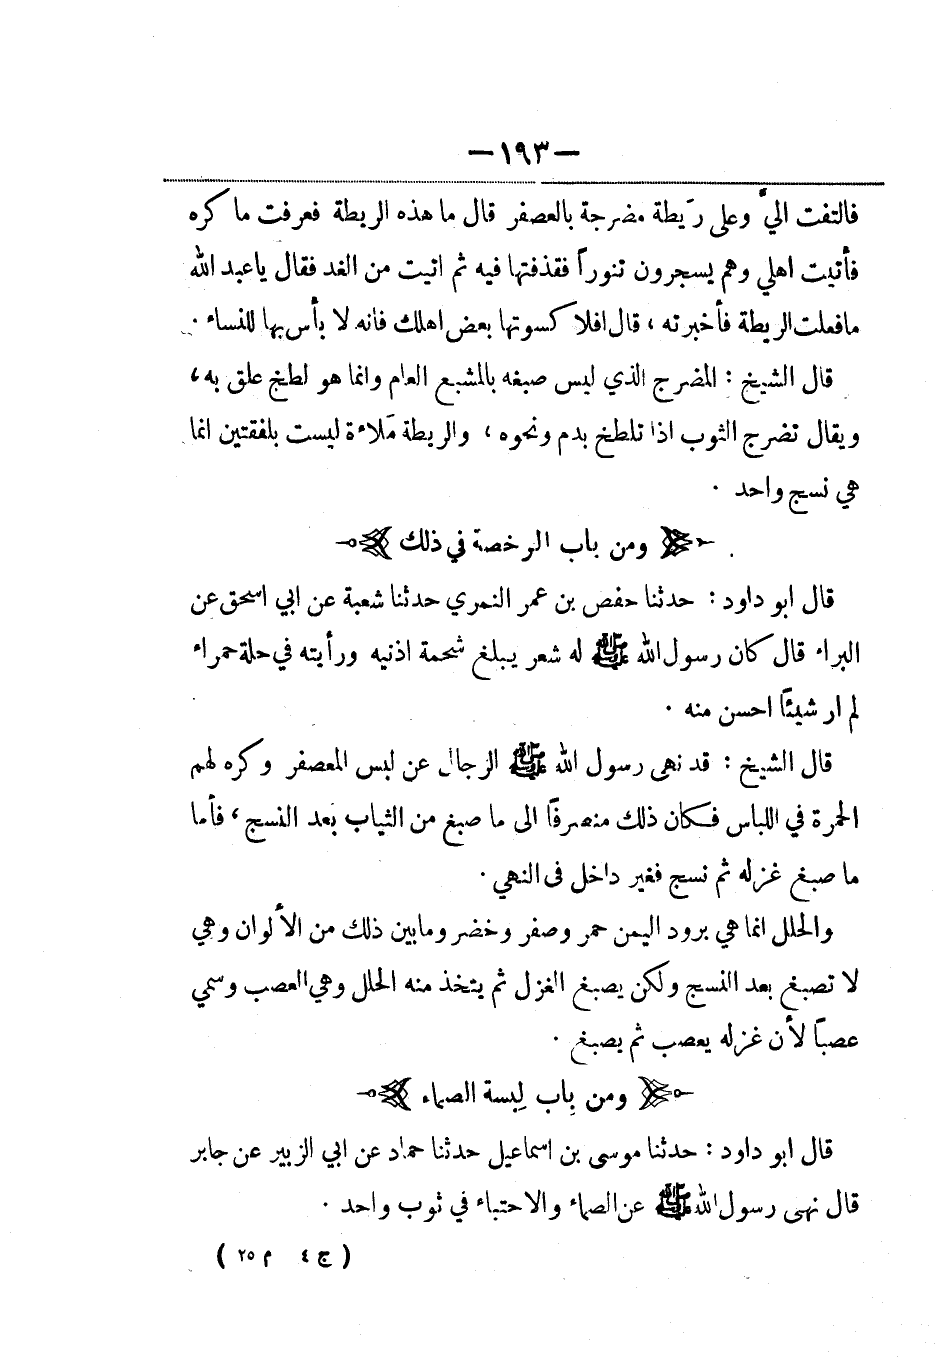 —١٩٣—
فالتفت اليّ وعلى رَيطة مضرجة بالعصفر قال ما هذه الريطة فعرفت ما كره
فأتيت اهلي وهم يسجرون تنوراً فقذفتها فيه ثم اتيت من الغد فقال ياعبد الله
مافعلت الريطة فأخبرته ، قال افلا كسوتها بعض اهلك فانه لا بأس بها للنساء .
قال الشيخ : المضرج الذي ليس صبغه بالمشبع العام وانما هو لطخ علق به ،
ويقال تضرج الثوب اذا تلطخ بدم ونحوه ، والريطة مَلاءة ليست بلفقتين انما
هي نسج واحد .
ومن باب الرخصة في ذلك
قال ابو داود : حدثنا حفص بن عمر النمري حدثنا شعبة عن ابي اسحق عن
البراء قال كان رسول الله ﷺ له شعر يبلغ شحمة اذنيه ورأيته في حلة حمراء
لم ار شيئاً احسن منه .
قال الشيخ : قد نهى رسول الله ﷺ الرجال عن لبس المعصفر وكره لهم
الحمرة في اللباس فكان ذلك منصرفاً الى ما صبغ من الثياب بعد النسج ، فأما
ما صبغ غزله ثم نسج فغير داخل فى النهي .
والحلل انما هي برود اليمن حمر وصفر وخضر ومابين ذلك من الألوان وهي
لا تصبغ بعد النسج ولكن يصبغ الغزل ثم يتخذ منه الحلل وهي العصب وسمي
عصباً لأن غزله يعصب ثم يصبغ .
ومن بِاب لِبسة الصماء
قال ابو داود : حدثنا موسى بن اسماعيل حدثنا حماد عن ابي الزبير عن جابر
قال نهى رسول الله ﷺ عن الصماء والاحتباء في ثوب واحد .
( ج ٤ م ٢٥ )